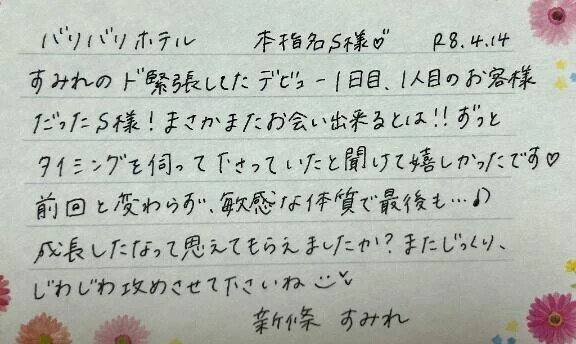 バリバリホテル 本指名S様♡ R8.4.14
すみれのド緊張してたデビュー1日目、1人目のお客様
だったS様!まさかまたお会い出来るとは!!ずっと
タイミングを伺って下さっていたと聞けて嬉しかったです♡
前回と変わらず、敏感な体質で最後も…♪
成長したなって思えてもらえましたか?またじっくり、
じわじわ攻めさせて下さいね
新條 すみれ